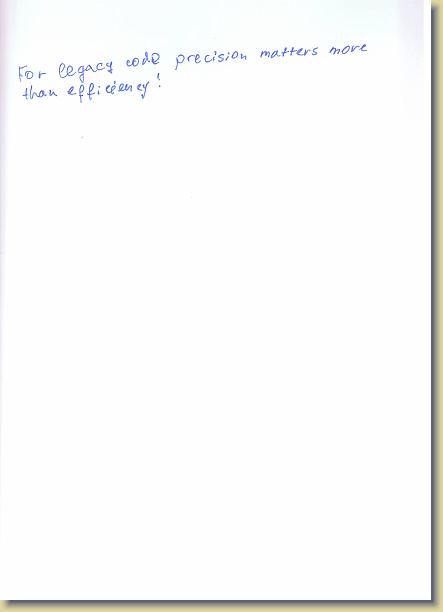 For legacy code precision matters more
than efficiency!